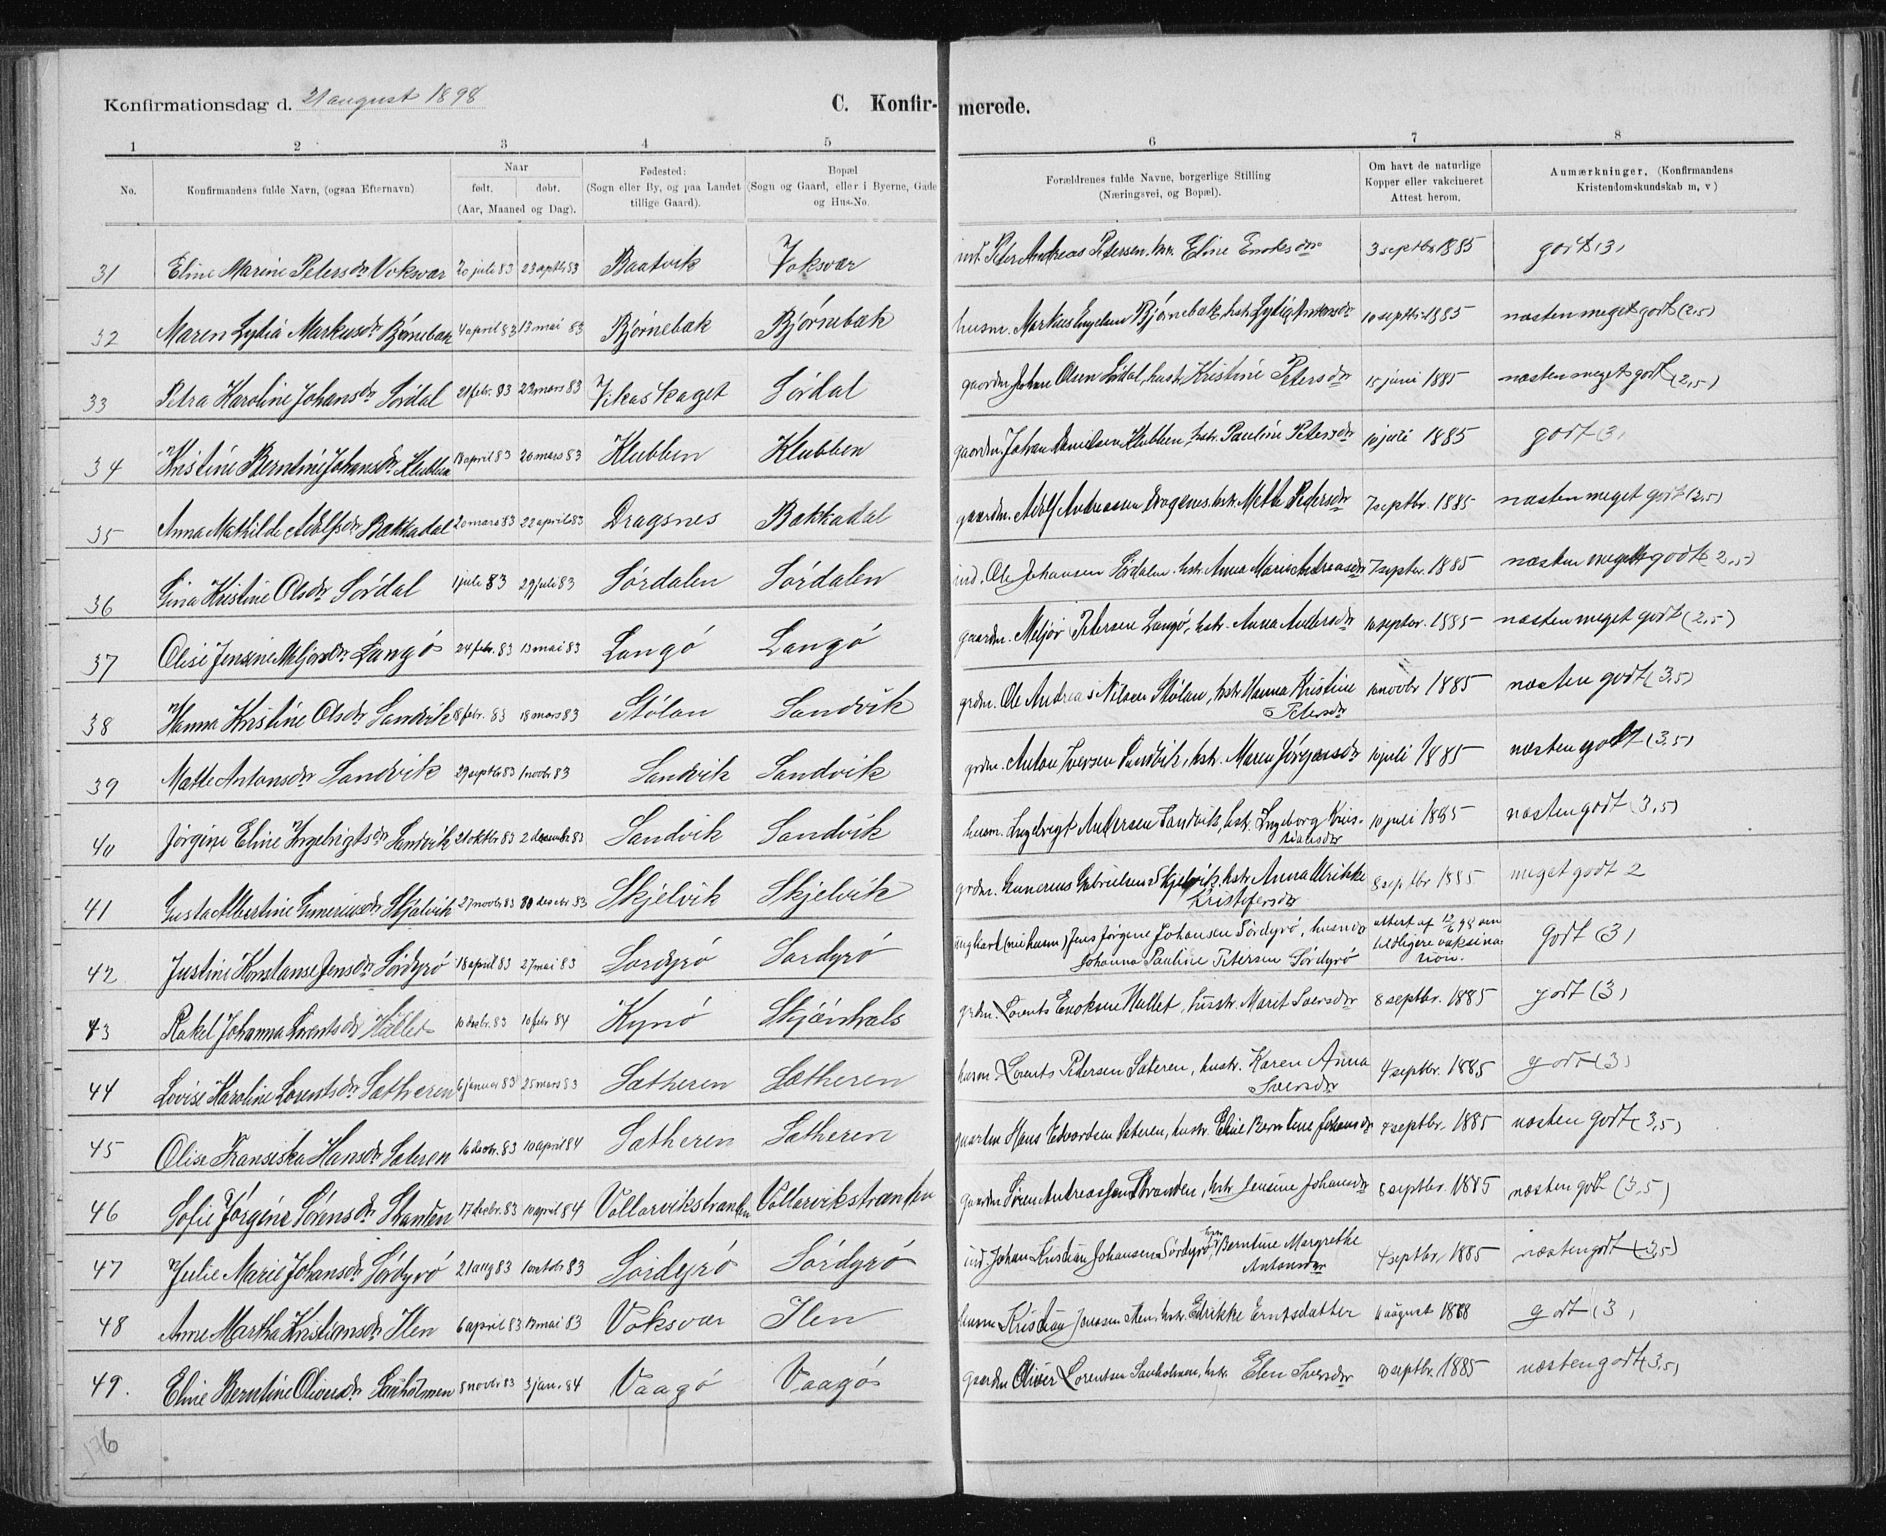 Konfirmationsdag d. 21 august 1898
C. Konfir- merede.
1 2 3 4 5 6 7 8
No. Konfirmandens fulde Navn, (ogsaa Efternavn) Naar født. døbt. (Aar, Maaned og Dag). Fødested: (Sogn eller By, og paa Landet tillige Gaard). Bopæl (Sogn og Gaard, eller i Byerne, Gade og Hus-No. Forældrenes fulde Navne, borgerlige Stilling (Næringsvei, og Bopæl). Om havt de naturlige Kopper eller vakcineret Attest herom. Anmærkninger, (Konfirmandens Kristendomskundskab m, v)
31 Eline Marine Petersdr Voksvær 20 juli 83 23 septbr 83 Baatvik Voksvær ind. Peter Andreas Petersen, Eline Enoksdr 3 septbr 1885 godt (3)
32 Maren Lydia Markusdr Bjørnebæk 4 april 83 13 mai 83 Bjørnebæk Bjørnebæk husm. Markus Ingelsen Bjørnebæk, hstr. 10 septbr 1885 næsten meget godt (2,5)
33 Petra Karoline Johansdr Sørdal 21 febr. 83 23 mars 83 Vikaskaget Sørdal gaardm. Johan Olsen Sørdal, hstr. Kristine Petersdr 15 juni 1885 næsten meget godt (2,5)
34 Kristine Berntine Johansdr Klubben april 83 20 mars 83 Klubben Klubben gaardm. Johan Danielsen Klubben, hstr. Pauline Petersdr 10 juli 1885 godt (3)
35 Anna Mathilde Adolfsdr Bakkadal 20 mars 83 22 april 83 Dragsnes Bakkadal gaardm. Adolf Andreassen Dragsnes, hstr. Mette Petersdr 7 septbr. 1885 næsten meget godt (2,5)
36 Gina Kristine Olsdr Sørdal 1 juli 83 29 juli 83 Sørdalen Sørdalen ind. Ole Johansen Sørdalen, hstr. Anna Marie Andreasdr 7 septbr. 1885 næsten meget godt (2,5)
37 Olise Jensine Meljorsdr Langø 24 febr. 83 13 mai 83 Langø Langø gaardm. Meljor Petersen Langø, hstr. Anna Andersdr 10 septbr. 1885 næsten meget godt (2,5)
38 Hanna Kristine Olsdr Sandvik 8 febr. 83 18 mars 83 Stølan Sandvik grdm. Ole Andreas Nilsen Stølan, hstr. Hanna Kristine
Petersdr 10 novbr 1885 næsten godt (3,5)
39 Mette Antonsdr Sandvik 29 septbr 83 1 novbr 83 Sandvik Sandvik grdm. Anton Iversen Sandvik, hstr. Maren Jørgensdr 10 juli 1885 næsten godt (3,5)
40 Jørgine Eline Ingebrigtsdr Sandvik 21 oktbr 83 2 desember 83 Sandvik Sandvik husm. Ingebrigt Andersen Sandvik, hstr. Ingeborg Kris-
tiansdr 10 juli 1885 næsten godt (3,5)
41 Gusta Albertine Guneriusdr Skjelvik 27 novbr 83 30 desbr 83 Skjelvik Skjelvik grdm. Gunerius Gabrielsen Skjelvik, hstr. Anna Ulrikke
Kristofersdr 8 septbr 1885 meget godt 2
42 Justine Konstanse Jensdr Sørdyrø 18 april 83 27 mai 83 Sørdyrø Sørdyrø Jens Jørgine Johansen Sørdyrø,
Johanna Pauline Petersen Sørdyrø attest af 12/6 98 om
tidligere vaksina-
tion. godt (3)
43 Rakel Johanna Lorentsdr Hallet 10 desbr. 83 10 febr 84 Kynø Skjønhals grdm. Lorents Enoksen Hallet, hustr. Marit Iversdr 8 septbr. 1885 godt (3)
44 Lovise Karoline Lorentsdr Sætheren 6 januar 83 25 mars 83 Sætheren Sætheren husm. Lorents Petersen Sæteren, hustr. Karen Anna
Iversdr 4 septbr. 1885 godt (3)
45 Olise Fransiska Hansdr Sæteren 16 desbr. 83 10 april 84 Sætheren Sætheren gaardm Hans Edvardsen Sæteren, hustr. Eline Berntine Johansdr septbr. 1885 næsten godt (3,5)
46 Sofie Jørgine Sørensdr Stranden 17 desbr. 83 10 april 84 Vollarvikstranden Vollarvikstranden gaardm Søren Andreassen Stranden, hstr. Jensine Johansdr 8 septbr. 1885 næsten godt (3,5)
47 Julie Marie Johansdr Sørdyrø 21 aug 83 1 oktbr 83 Sørdyrø Sørdyrø ind. Johan Kristian Johansen Sørdyrø, Berntine Margrethe
Antonsdr 4 septbr, 1885 næsten godt (3,5)
48 Anne Martha Kristiansdr Ilen 6 april 83 13 mai 83 Voksvær Ilen husm Kristian Jonassen Ilen, hstr. Edrikke Erntsdatter 11 august 1888 godt (3)
49. Eline Berntine Oliversdr Sauholmen 8 novbr 83 3 jan. 84 Vaagø Vaagø gaardm Oliver Lorentsen Sauholmen, hstr. Elen Iversdr septbr. 1885 næsten godt (3,5)
176